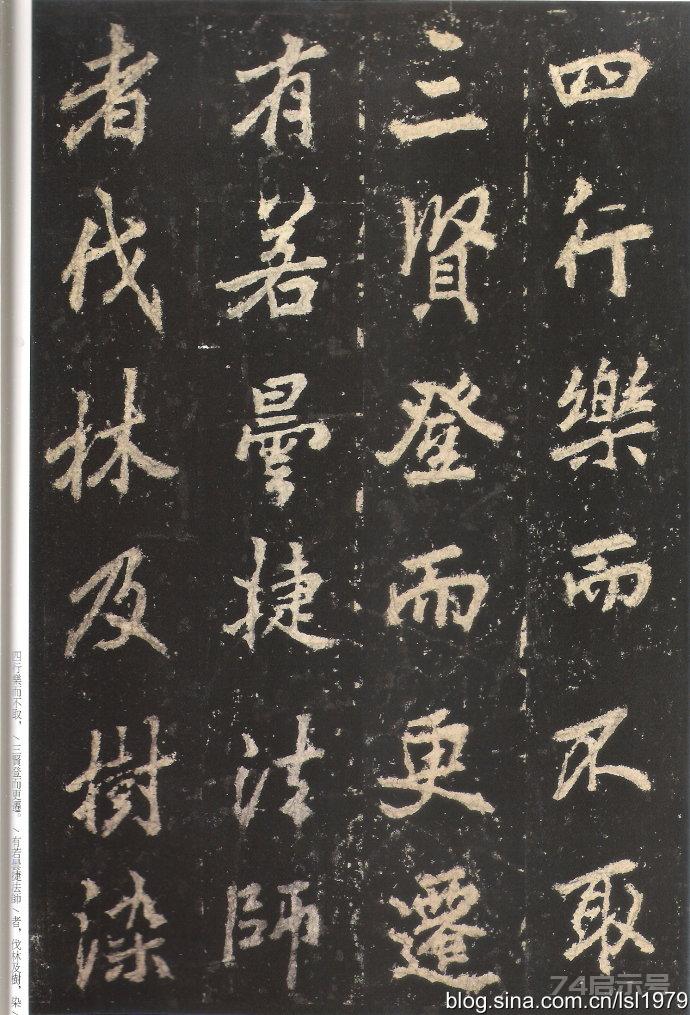 四行樂而不取
三賢登而更遷
有若曇捷法師
者伐林及樹染
四行樂而不取，/三賢登而更遷。/有若曇捷法師/者，伐林及樹，染/
74启示号
blog.sina.com.cn/lsl1979